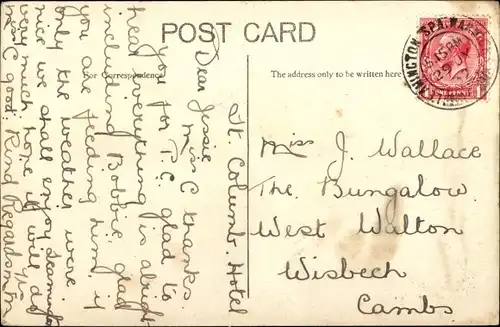 POST CARD
For Correspondence
The address only to be written here
St. Columb. Hotel
Dear Jessie
Miss C thanks
you for P.C. glad to
hear everything is alright
including Bobbie: glad
you are feeding him if
only the weather were
nice we shall enjoy Leamington
very much hope it will do
Miss C good: Kind Regards
Miss J. Wallace
The Bungalow
West Walton
Wisbech
Cambs
ONE PENNY